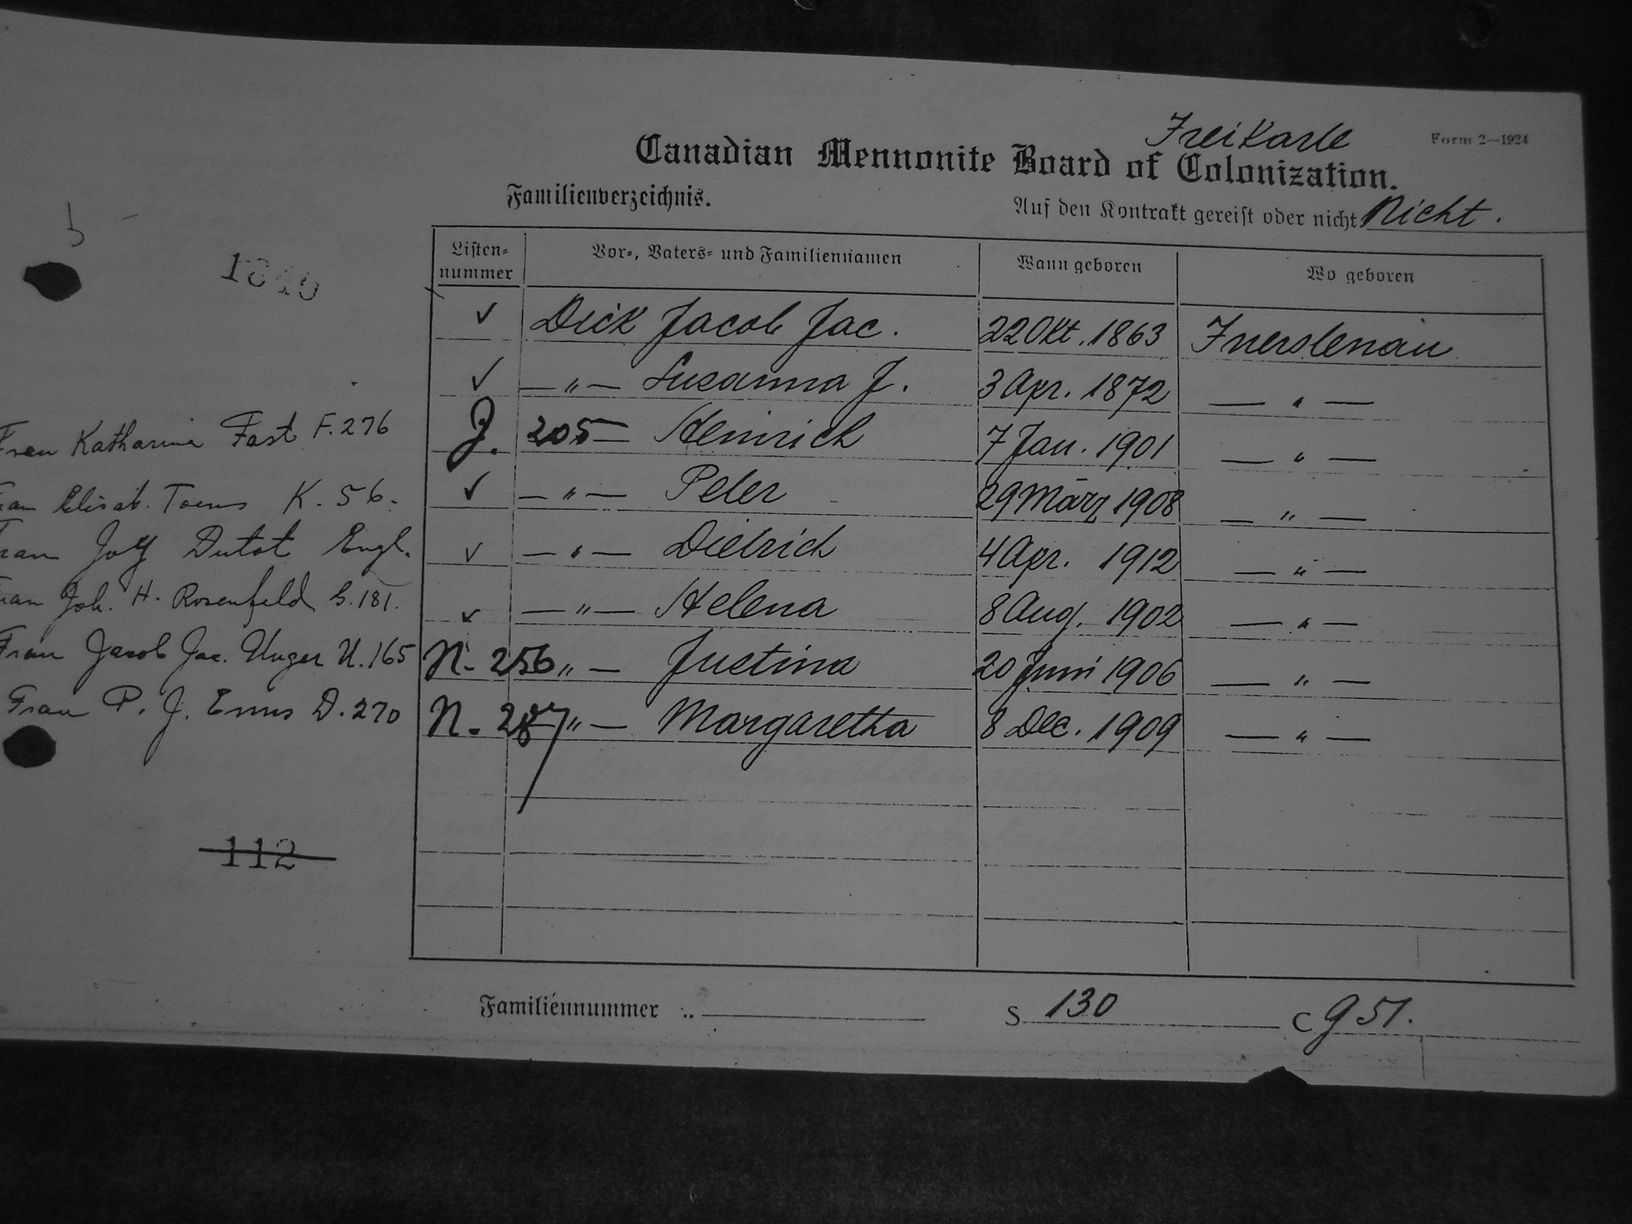 Freikarte
Form 2—1924
Canadian Mennonite Board of Colonization.
Familienverzeichnis.
Auf den Kontrakt gereist oder nicht Nicht.
1840
Listen-nummer
Vor-, Vaters- und Familiennamen
Wann geboren
Wo geboren
✓ Dick Jacob Jac. 22 Okt. 1863 Fuerstenau
✓ — " — Susanna J. 3 Apr. 1872 — " —
Frau Katharina Fast F. 276
J. 205 — Heinrich 7 Jan. 1901 — " —
✓ — " — Peter 29 März 1908 — " —
Frau Elisab. Toews K. 56.
✓ — " — Dietrich 4 Apr. 1912 — " —
Frau Dutot Engl.
✓ — " — Helena 8 Aug. 1902 — " —
Frau Joh. H. Rosenfeld 181.
N. 256 " — Justina 20 Juni 1906 — " —
Frau Jacob Jac. Unger U. 165
N. 287 " — Margaretha 8 Dec. 1909 — " —
Frau P. J. Enns D. 270
112
Familiennummer
S 130
C 951.